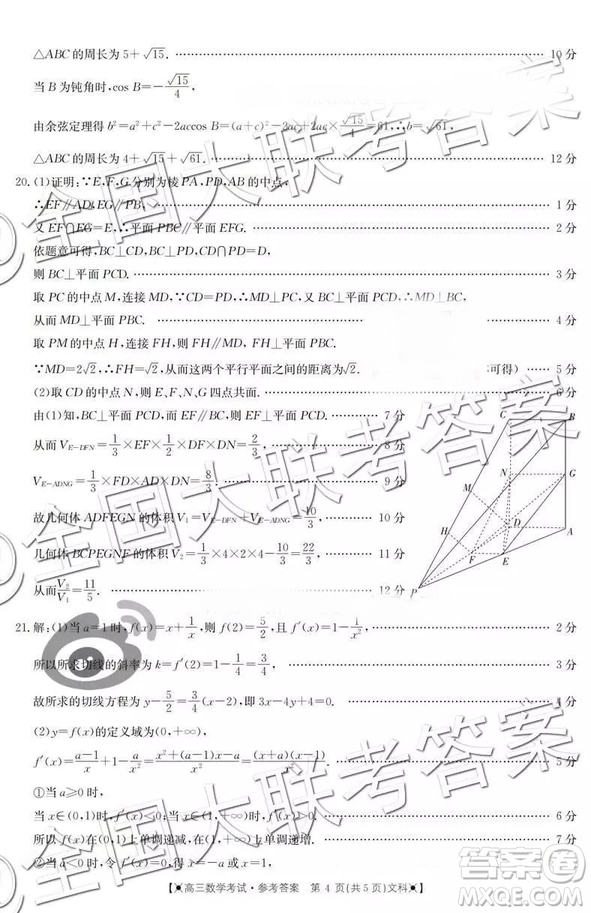 △ABC的周长为5+√15. 10分
当B为钝角时,cos B=-√15/4,
由余弦定理得b²=a²+c²-2accos B=(a+c)²-2ac+2ac×√15/4=61,b=√61,
△ABC的周长为4+√15+√61. 12分
20.(1)证明:∵E,F,G分别为棱PA,PD,AB的中点,
∴EF∥AD,EG∥PB, 1分
又EF∩EG=E,∴平面PBC∥平面EFG. 2分
依题意可得,BC⊥CD,BC⊥PD,CD∩PD=D,
则BC⊥平面PCD. 3分
取PC的中点M,连接MD,∵CD=PD,∴MD⊥PC,又BC⊥平面PCD,∴MD⊥BC,
从而MD⊥平面PBC. 4分
取PM的中点H,连接FH,则FH∥MD,
∵MD=2√2,∴FH=√2,从而这两个平行平面之间的距离为√2. 可得) 5分
(2)取CD的中点N,则E、F、N、G四点共面. 6分
由(1)知,BC⊥平面PCD,而EF∥BC,则EF⊥平面PCD, 7分
从而V_{E-DFN}=1/3×EF×1/2×DF×DN=2/3, 8分
V_{E-ADNG}=1/3×FD×AD×DN=8/3, 9分
故几何体ADFEGN的体积V₁=V_{E-DFN}+V_{E-ADNG}=10/3, 10分
几何体BCPEGNF的体积V₂=1/3×4×2×4-10/3=22/3, 11分
从而V₂/V₁=11/5. 12分
C
B
N
G
M
D
A
H
F
E
P
21.解:(1)当a=1时,f(x)=x+1/x,则f(2)=5/2,且f′(x)=1-1/x², 2分
所以所求切线的斜率为k=f′(2)=1-1/4=3/4, 3分
故所求的切线方程为y-5/2=3/4(x-2),即3x-4y+4=0. 4分
(2)y=f(x)的定义域为(0,+∞),
f′(x)=(a-1)/x+1-a/x²=(x²+(a-1)x-a)/x²=((x+a)(x-1))/x². 5分
①当a≥0时,
当x∈(0,1)时,f′(x)<0;当x∈(1,+∞)时,f′(x)>0.
所以f(x)在(0,1)上单调递减,在(1,+∞)上单调递增. 7分
②当a<0时,令f′(x)=0,得x=1或x=-a.
【高三数学考试·参考答案 第4页(共5页)文科】
全国大联考答案
全国大联考答案
全国大联考答案
答案圈
MXQE.COM